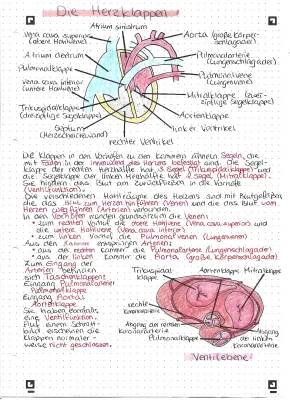 Die Herzklappen
Atrium sinistrum
Vena cava superior
(obere Hohlvene)
Aorta (große Körper-
schlagader)
Atrium dextrum
Pulmonalarterie
(Lungenschlagader)
Pulmonalklappe
Pulmonalvene
(Lungenvene)
Vena cava inferior
(untere Hohlvene)
Mitralklappe (zwei-
zipflige Segelklappe)
Trikuspidalklappe
(dreizipflige Segelklappe)
Aortenklappe
Septum
(Herzscheidewand)
linker Ventrikel
rechter Ventrikel
Die Klappen in den Vorhöfen zu den Kammern ähneln Segeln, die
mit Fäden in der Innenwand des Herzens befestigt sind. Die Segel-
klappe der rechten Herzhälfte hat 3 Segel (Trikuspidalklappe) und
die Segelklappe der linken Herzhälfte hat 2 Segel (Mitralklappe).
Sie hindern das Blut am Zurückfließen in die Vorhöfe
(Ventilfunktion).
Die verschiedenen Hohlräume des Herzens sind mit Blutgefäßen
die das Blut zum Herzen hin führen (Venen) und die das Blut vom
Herzen weg führen (Arterien) verbunden.
In den Vorhöfen münden grundsätzlich die Venen:
zum rechten Vorhof die obere Hohlvene (Vena cava superior) und
die untere Hohlvene (Vena cava inferior)
zum linken Vorhof die Pulmonalvenen (Lungenvenen)
Aus den Kammern entspringen Arterien:
aus der rechten Kammer die Pulmonalarterie (Lungenschlagader)
aus der linken Kammer die Aorta (große Körperschlagader)
Zum Eingang der
Arterien befinden
sich Taschenklappen:
Eingang Pulmonalarterie:
Pulmonalklappe
Eingang Aorta:
Aortenklappe
Sie haben ebenfalls
eine Ventilfunktion.
Auf einem Schnitt-
bild erscheinen die
Klappen normaler-
weise nicht geschlossen.
Trikuspidal-
klappe
Aortenklappe
Mitralklappe
rechte
Koronararterie
Abgang der rechten
Koronararterie
Pulmonalklappe
Abgang
der linken
Koronararterie
Ventilebene